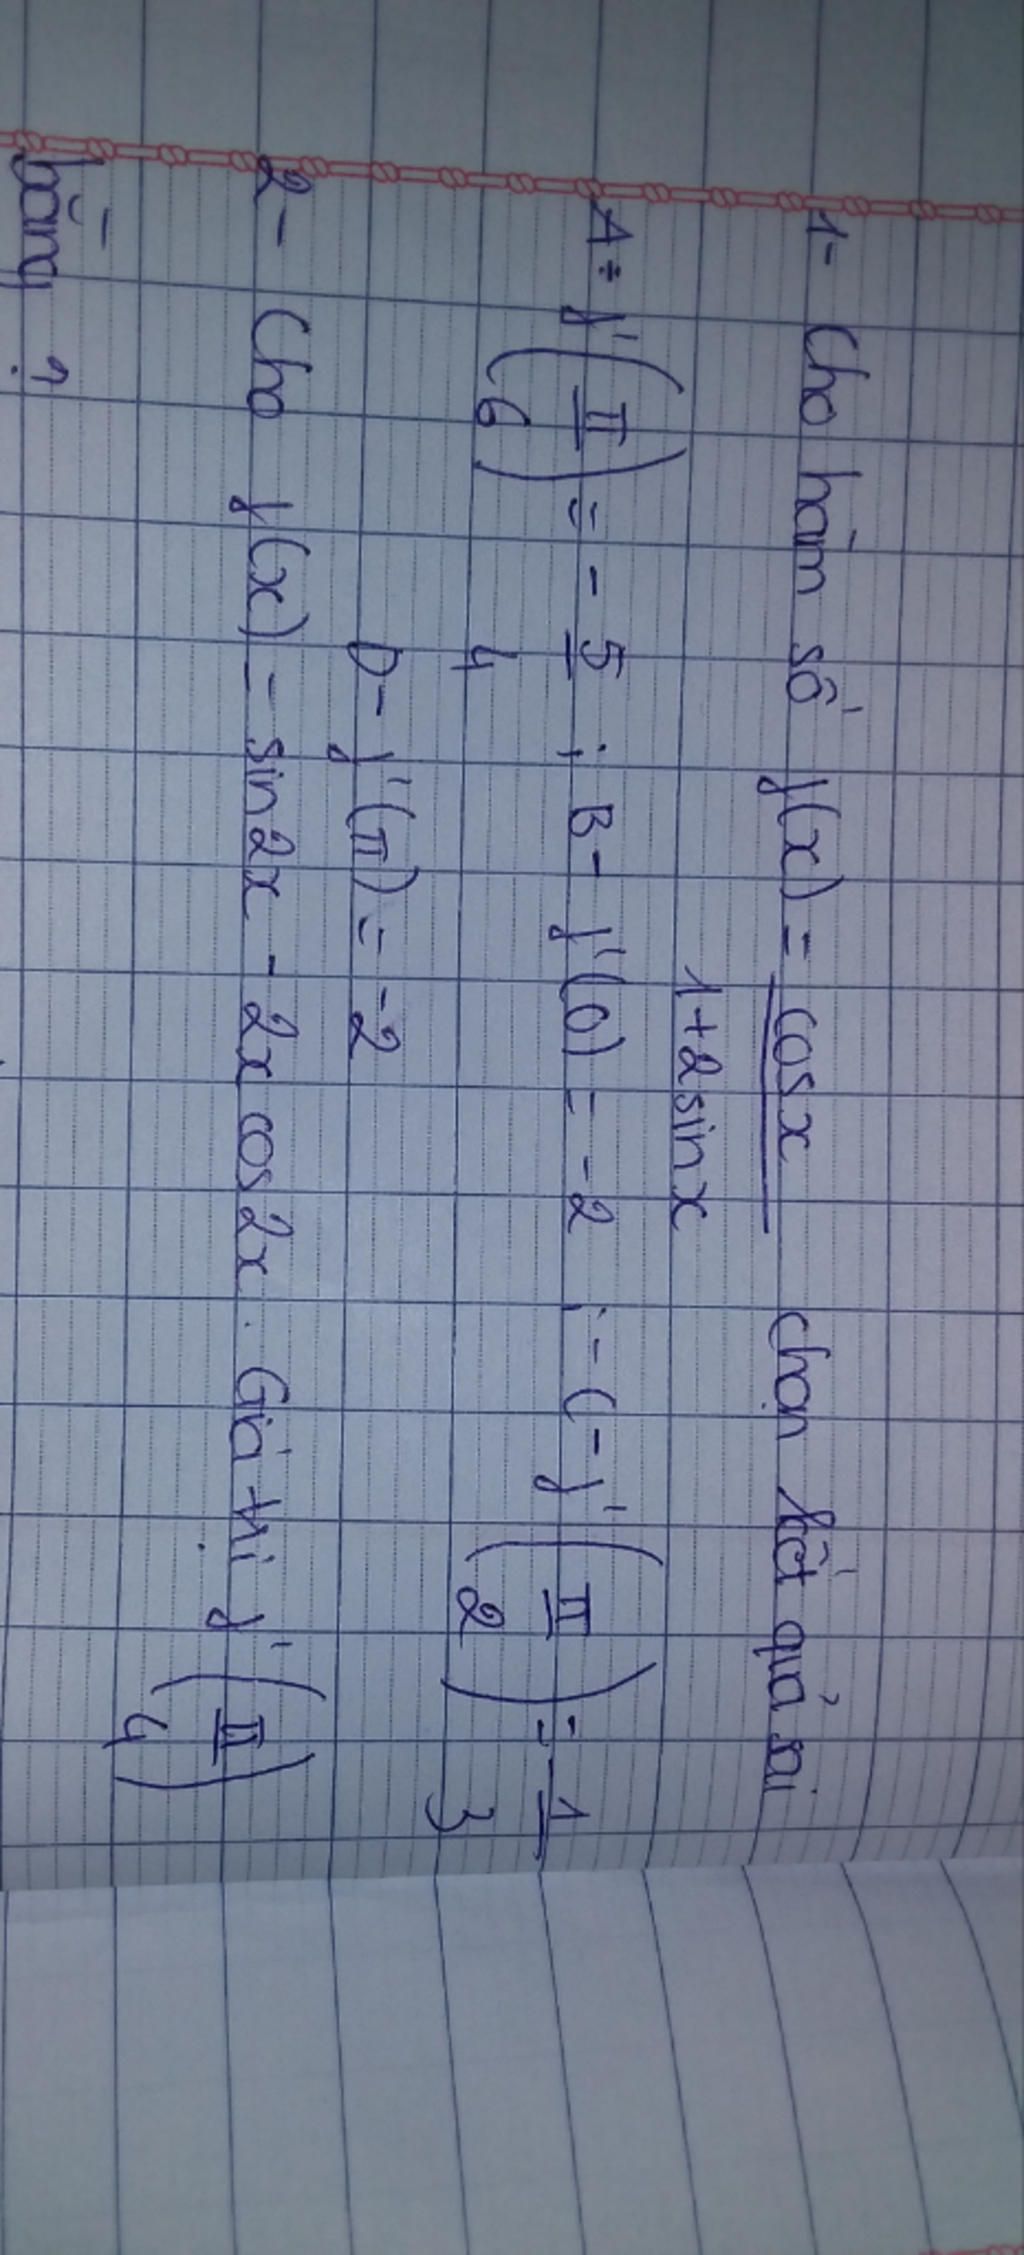 1- Cho hàm số f(x) = cos x / 1+2sin x chọn kết quả sai
A: f'(π/6) = -5/4 ; B- f'(0) = -2 ; - C- f'(π/2) = -1/3
D- f'(π) = -2
2- Cho f(x) = sin2x - 2x cos2x. Giá thị f'(π/4)
bằng ?